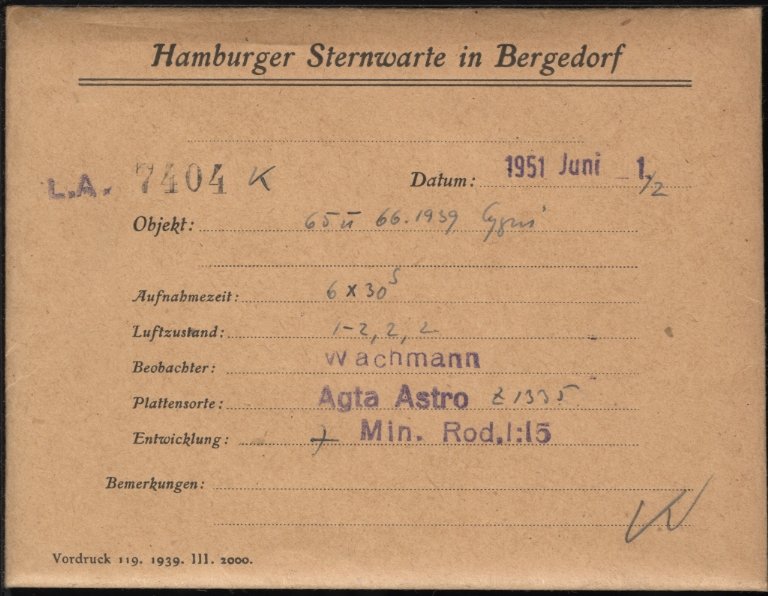 Hamburger Sternwarte in Bergedorf
L.A. 7404 K Datum: 1951 Juni _1./2
Objekt: 65 u 66.1939 Cygni
Aufnahmezeit: 6 x 30s
Luftzustand: 1-2, 2, 2
Beobachter: Wachmann
Plattensorte: Agfa Astro Z 1335
Entwicklung: Min. Rod.1:15
Bemerkungen:
Vordruck 119. 1939. III. 2000.